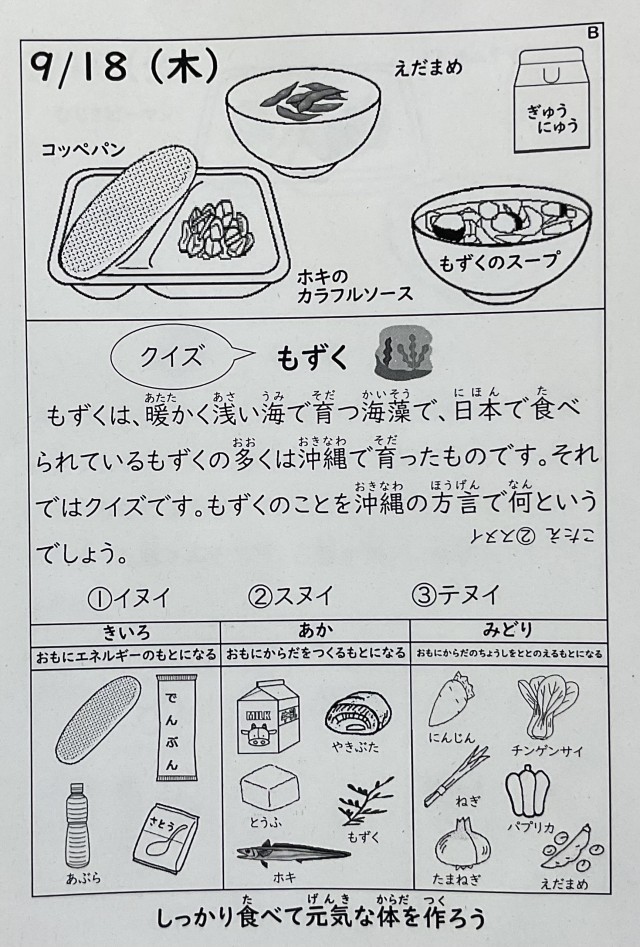 B
9/18（木）
えだまめ
ぎゅう
にゅう
コッペパン
もずくのスープ
ホキの
カラフルソース
クイズ
もずく
もずくは、暖かく浅い海で育つ海藻で、日本で食べ
られているもずくの多くは沖縄で育ったものです。それ
ではクイズです。もずくのことを沖縄の方言で何という
でしょう。
こたえ ②スヌイ
①イヌイ ②スヌイ ③テヌイ
きいろ あか みどり
おもにエネルギーのもとになる おもにからだをつくるもとになる おもにからだのちょうしをととのえるもとになる
でんぷん
MILK
やきぶた
にんじん
チンゲンサイ
さとう
とうふ
もずく
ねぎ
パプリカ
あぶら
ホキ
たまねぎ
えだまめ
しっかり食べて元気な体を作ろう